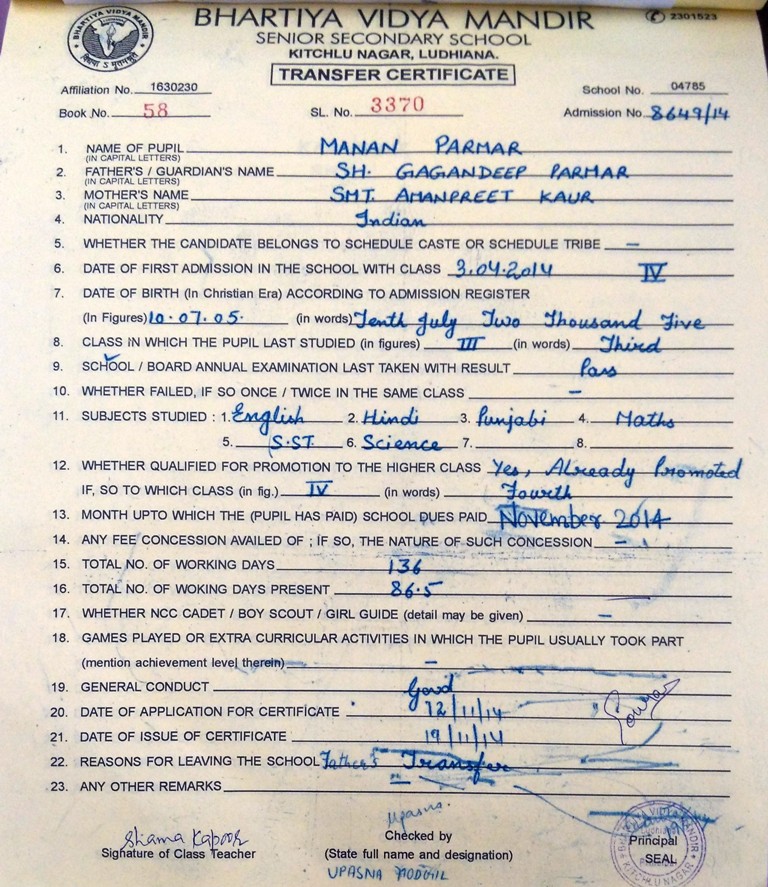 BHARTIYA VIDYA MANDIR
BHARTIYA VIDYA MANDIR
✆ 2301523
SENIOR SECONDARY SCHOOL
KITCHLU NAGAR, LUDHIANA.
TRANSFER CERTIFICATE
Affiliation No. 1630230 School No. 04785
Book No. 58 SL. No. 3370 Admission No 8649/14
1. NAME OF PUPIL MANAN PARMAR
(IN CAPITAL LETTERS)
2. FATHER'S / GUARDIAN'S NAME SH. GAGANDEEP PARMAR
(IN CAPITAL LETTERS)
3. MOTHER'S NAME SMT. AMANPREET KAUR
(IN CAPITAL LETTERS)
4. NATIONALITY Indian
5. WHETHER THE CANDIDATE BELONGS TO SCHEDULE CASTE OR SCHEDULE TRIBE –
6. DATE OF FIRST ADMISSION IN THE SCHOOL WITH CLASS 3.04.2014 IV
7. DATE OF BIRTH (In Christian Era) ACCORDING TO ADMISSION REGISTER
(In Figures) 10.07.05. (in words) Tenth July Two Thousand Five
8. CLASS IN WHICH THE PUPIL LAST STUDIED (in figures) III (in words) Third
9. SCHOOL / BOARD ANNUAL EXAMINATION LAST TAKEN WITH RESULT Pass
10. WHETHER FAILED, IF SO ONCE / TWICE IN THE SAME CLASS –
11. SUBJECTS STUDIED : 1. English 2. Hindi 3. Punjabi 4. Maths
5. S.ST 6. Science 7. 8.
12. WHETHER QUALIFIED FOR PROMOTION TO THE HIGHER CLASS Yes, Already Promoted
IF, SO TO WHICH CLASS (in fig.) IV (in words) Fourth
13. MONTH UPTO WHICH THE (PUPIL HAS PAID) SCHOOL DUES PAID November 2014
14. ANY FEE CONCESSION AVAILED OF ; IF SO, THE NATURE OF SUCH CONCESSION –
15. TOTAL NO. OF WORKING DAYS 136
16. TOTAL NO. OF WOKING DAYS PRESENT 86.5
17. WHETHER NCC CADET / BOY SCOUT / GIRL GUIDE (detail may be given) –
18. GAMES PLAYED OR EXTRA CURRICULAR ACTIVITIES IN WHICH THE PUPIL USUALLY TOOK PART
(mention achievement level therein) –
19. GENERAL CONDUCT Good
20. DATE OF APPLICATION FOR CERTIFICATE 12/11/14
21. DATE OF ISSUE OF CERTIFICATE 19/11/14
22. REASONS FOR LEAVING THE SCHOOL Father's Transfer
23. ANY OTHER REMARKS –
Shama Kapoor Upasna.
Signature of Class Teacher Checked by Principal
(State full name and designation) SEAL
UPASNA
BHARTIYA VIDYA MANDIR
KITCHLU NAGAR